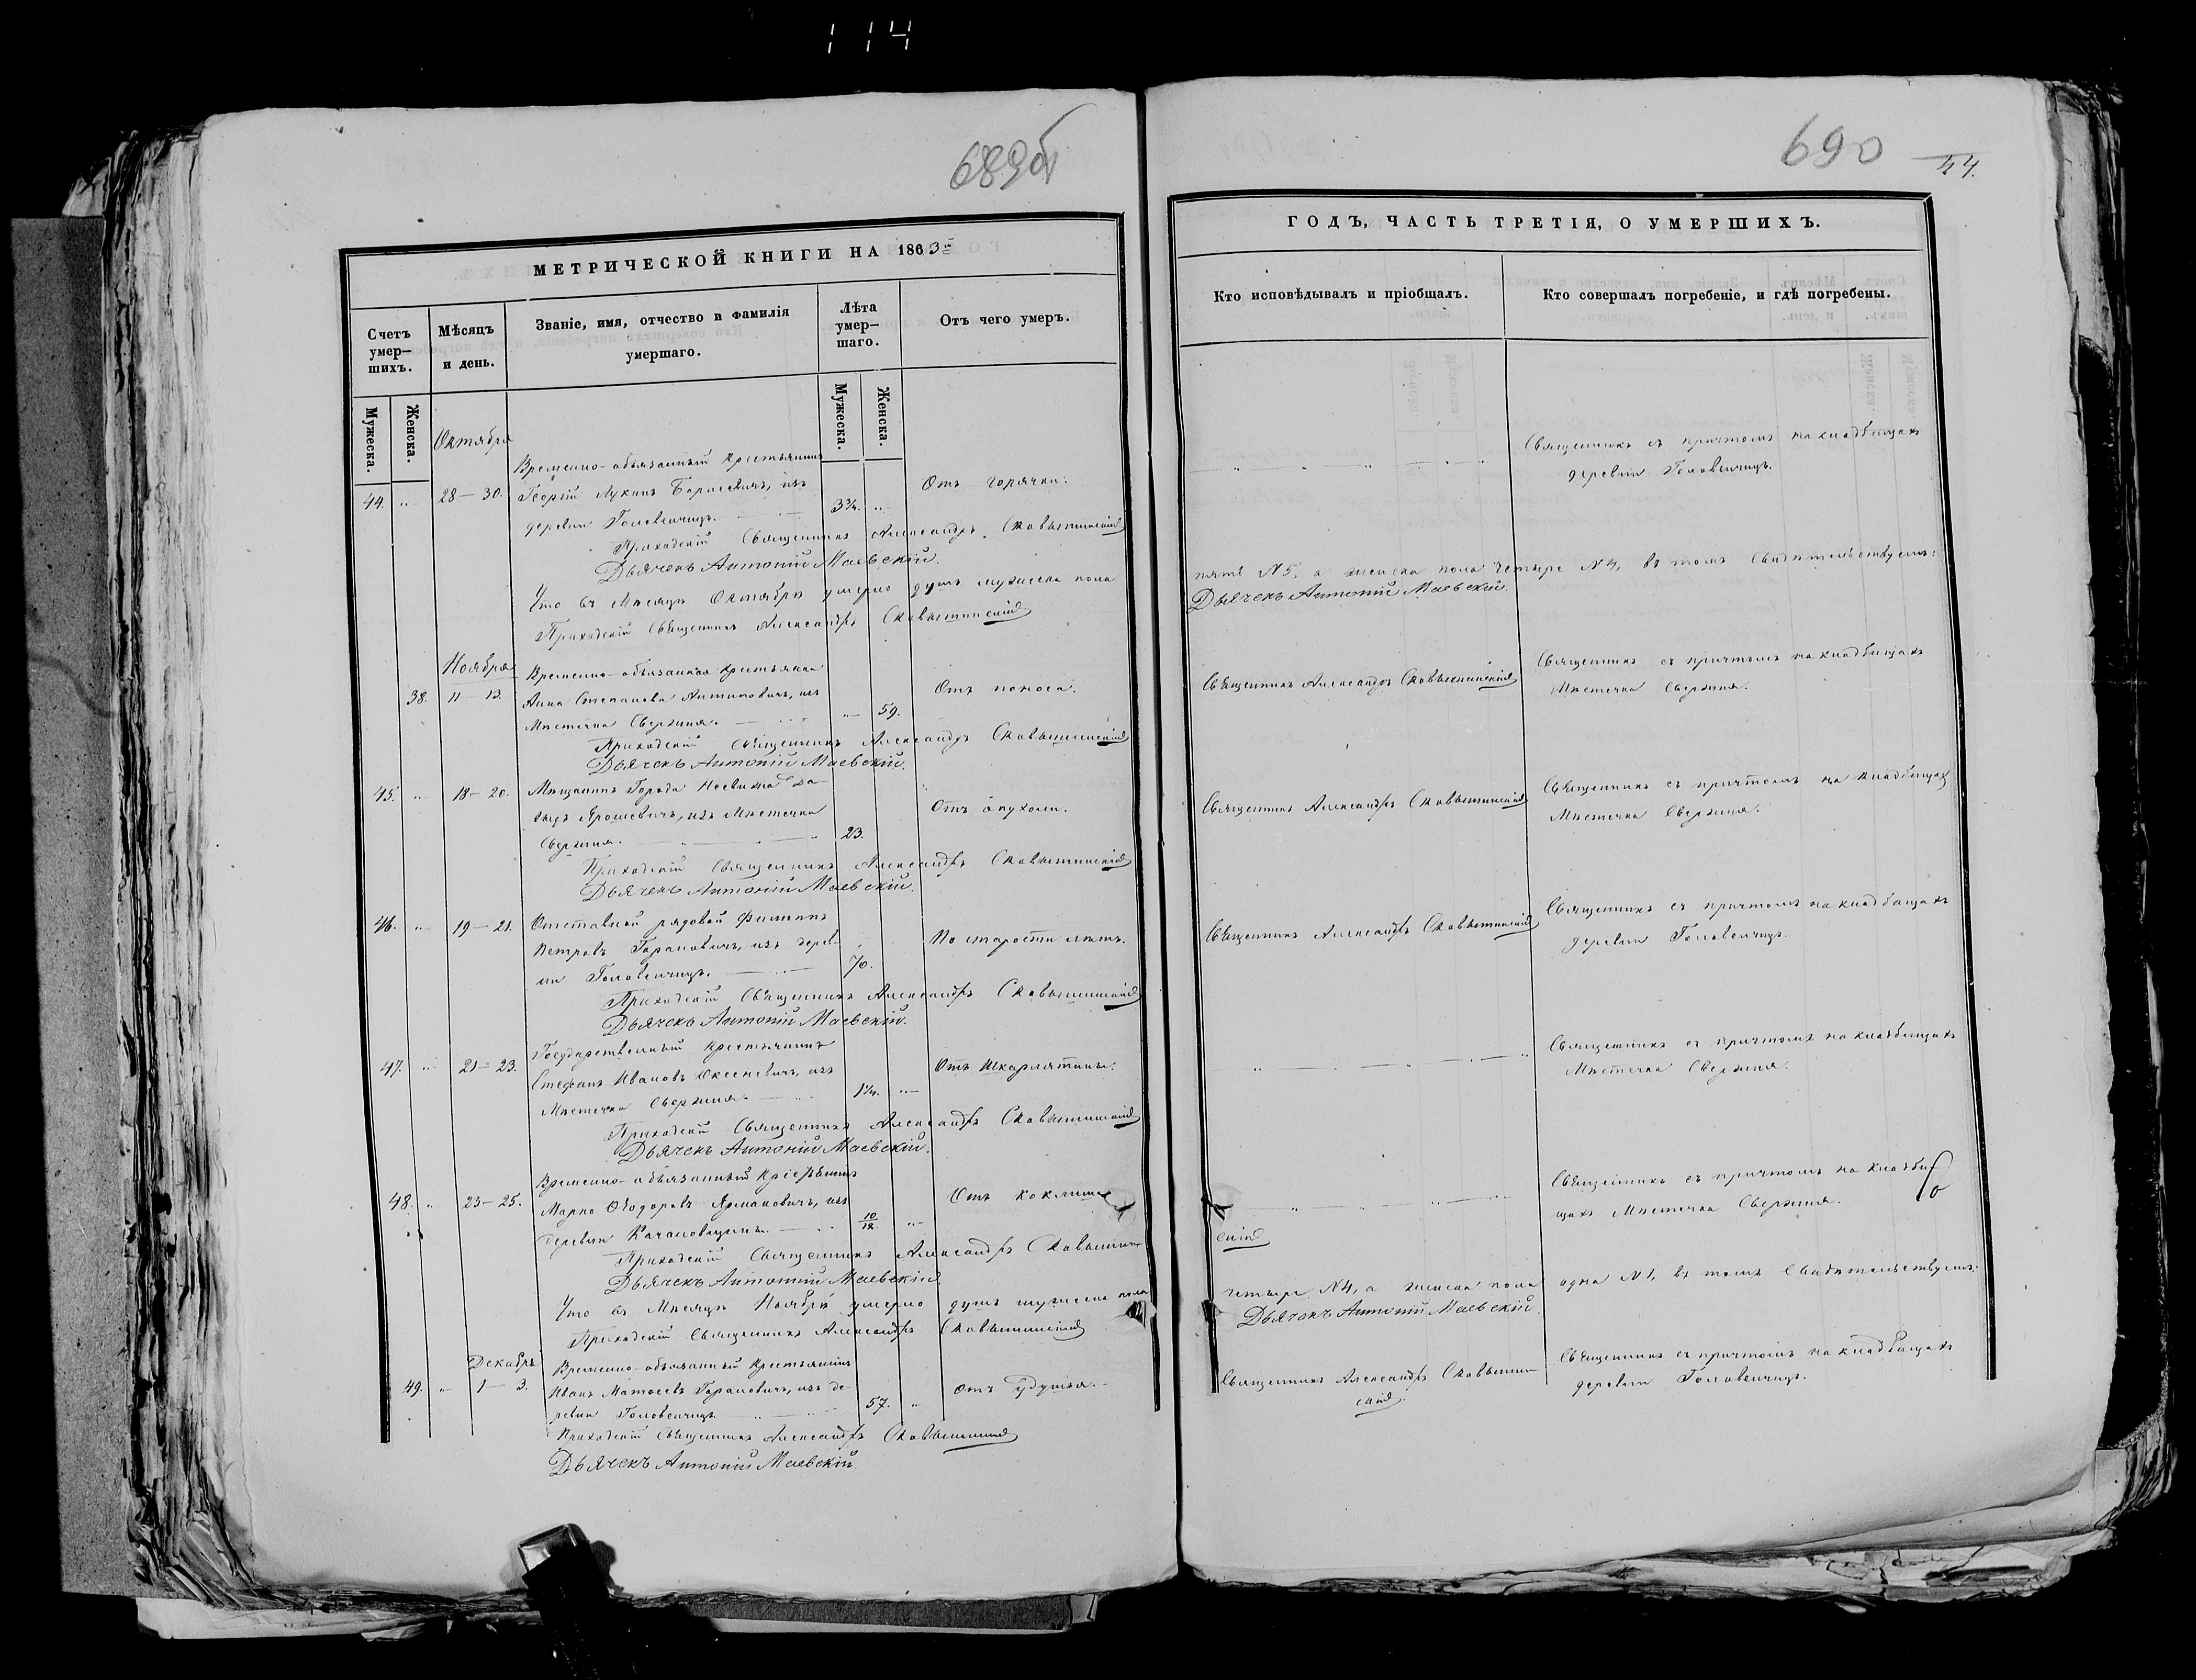 114
689об
МЕТРИЧЕСКОЙ КНИГИ НА 1863й
Счетъ умер-шихъ.
Мѣсяцъ и день.
Званіе, имя, отчество и фамилія умершаго.
Лѣта умер-шаго.
Отъ чего умеръ.
Мужеска.
Женска.
Мужеска.
Женска.
Октября
Временно-обязанный крестьянинъ
44. „ 28–30. Георгій Лукинъ изъ 3¾. „ Отъ горячки.
деревни Головенчицъ.
Приходскій Священникъ Александръ Сковышинскій
Дьячекъ Антоній Маевскій.
Что въ Мѣсяцѣ Октябрѣ умерло душъ мужеска пола
Приходскій Священникъ Александръ Сковышинскій
Ноября
Временно-обязанная крестьянка
38. 11–13. Анна Степанова Антиповичъ, изъ Отъ поноса.
Мѣстечка Свержня. „ 59.
Приходскій Священникъ Александръ Сковышинскій
Дьячекъ Антоній Маевскій.
45. „ 18–20. Мѣщанинъ Города Несвижа Да-
выдъ Ярошевичъ, изъ Мѣстечка Отъ опухоли.
Свержня. 23.
Приходскій Священникъ Александръ Сковышинскій
Дьячекъ Антоній Маевскій.
46. „ 19–21. Отставной рядовой Филиппъ
Петровъ Горановичъ, изъ дерев- По старости лѣтъ.
ни Головенчицъ. 70.
Приходскій Священникъ Александръ Сковышинскій
Дьячекъ Антоній Маевскій.
47. „ 21–23. Государственный крестьянинъ
Стефанъ Ивановъ изъ Отъ Шкарлятины.
Мѣстечка Свержня. 1¼. „
Приходскій Священникъ Александръ Сковышинскій
Дьячекъ Антоній Маевскій.
Временно-обязанный крестьянинъ
48. „ 23–25. Марко Ѳеодоровъ Ярмаковичъ, изъ Отъ коклиша
деревни 10/12. „
Приходскій Священникъ Александръ Сковышин-
Дьячекъ Антоній Маевскій
Что въ Мѣсяцѣ Ноябрѣ умерло душъ мужеска пола
Приходскій Священникъ Александръ Сковышинскій
Декабрь
Временно-обязанный крестьянинъ
49. „ 1–3. Иванъ Матѳеевъ Горановичъ, изъ де- отъ удушья.
ревни Головенчицъ 57. „
Приходскій Священникъ Александръ Сковышинскій
Дьячекъ Антоній Маевскій.
690
44.
ГОДЪ, ЧАСТЬ ТРЕТІЯ, О УМЕРШИХЪ.
Кто исповѣдывалъ и пріобщалъ.
Кто совершалъ погребеніе, и гдѣ погребены.
Священникъ съ причтомъ на кладбищахъ
деревни Головенчицъ.
пять N5, а женска пола четыре N4, въ томъ свидѣтельствуемъ:
Дьячекъ Антоній Маевскій.
Священникъ Александръ Сковышинскій
Священникъ съ причтомъ на кладбищахъ
Мѣстечка Свержня.
Священникъ Александръ Сковышинскій
Священникъ съ причтомъ на кладбищахъ
Мѣстечка Свержня.
Священникъ Александръ Сковышинскій
Священникъ съ причтомъ на кладбищахъ
деревни Головенчицъ.
Священникъ съ причтомъ на кладбищахъ
Мѣстечка Свержня.
Священникъ съ причтомъ на кладби-
щахъ Мѣстечка Свержня.
скій
четыре N4, а женска пола одна N1, въ томъ свидѣтельствуемъ:
Дьячекъ Антоній Маевскій.
Священникъ Александръ Сковышин-
скій.
Священникъ съ причтомъ на кладбищахъ
деревни Головенчицъ.